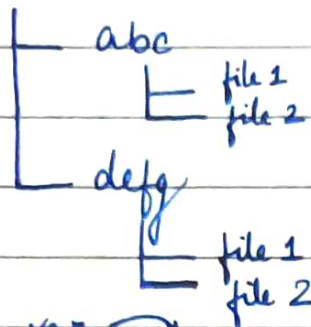 abc
file 1
file 2
defg
file 1
file 2